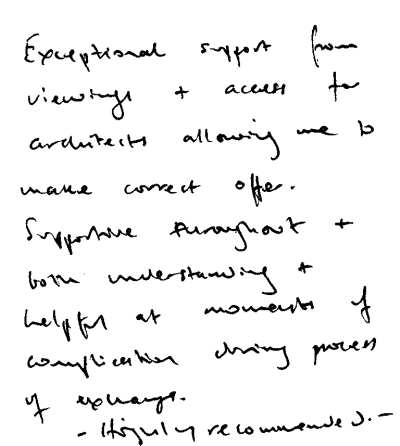 Exceptional support from
viewings + access for
architects allowing me to
make correct offer.
Supportive throughout +
both understanding +
helpful at moments of
complication during process
of exchange.
- Highly recommended. -